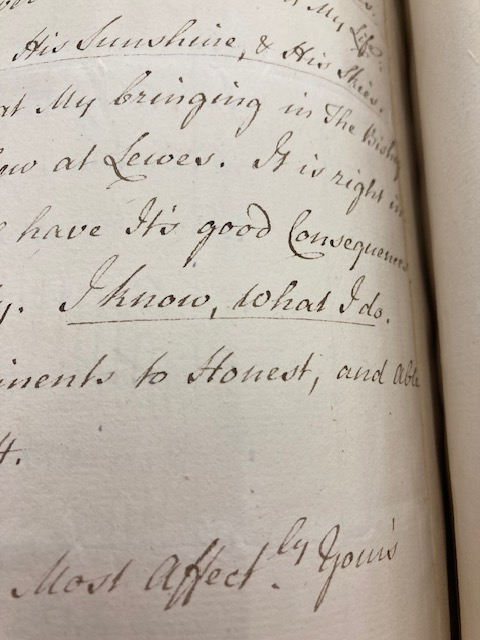 My Life.
His Sunshine, & His Skies.
at My bringing in The Bishop
at Lewes. It is right in
have It's good Consequences
I know, what I do.
to Honest, and Able
Most Affect.ly Your's